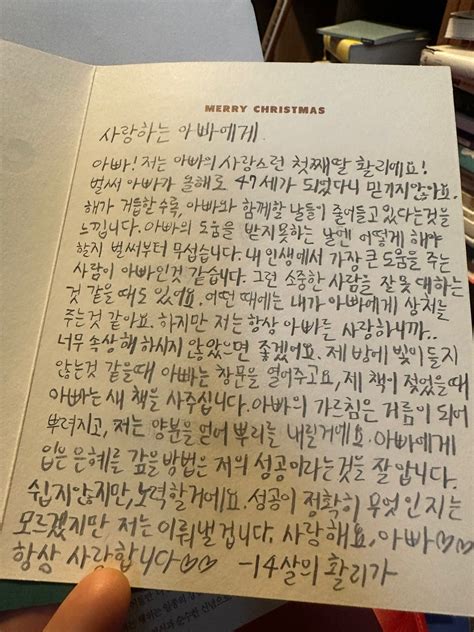 MERRY CHRISTMAS
사랑하는 아빠에게.
아빠! 저는 아빠의 사랑스런 첫째딸 활리예요!
벌써 아빠가 올해로 47세가 되었다니 믿기지않아요.
해가 거듭할수록, 아빠와 함께할 날들이 줄어들고있다는것을
느낍니다. 아빠의 도움을 받지못하는 날엔 어떻게 해야
할지 벌써부터 무섭습니다. 내 인생에서 가장 큰 도움을 주는
사람이 아빠인것 같습니다. 그런 소중한 사람을 잘못 대하는
것 같을때도 있어요. 어떤 때에는 내가 아빠에게 상처를
주는것 같아요. 하지만 저는 항상 아빠를 사랑하니까..
너무 속상해 하시지 않았으면 좋겠어요. 제 방에 빛이 들지
않는것 같을때 아빠는 창문을 열어주고요, 제 책이 젖었을때
아빠는 새 책을 사주십니다. 아빠의 가르침은 거름이 되어
뿌려지고, 저는 양분을 얻어 뿌리를 내릴거예요. 아빠에게
입은 은혜를 갚을 방법은 저의 성공이라는것을 잘 압니다.
쉽지않지만, 노력할거예요. 성공이 정확히 무엇인지는
모르겠지만 저는 이뤄낼겁니다. 사랑해요, 아빠♡♡
항상 사랑합니다♡♡ -14살의 활리가